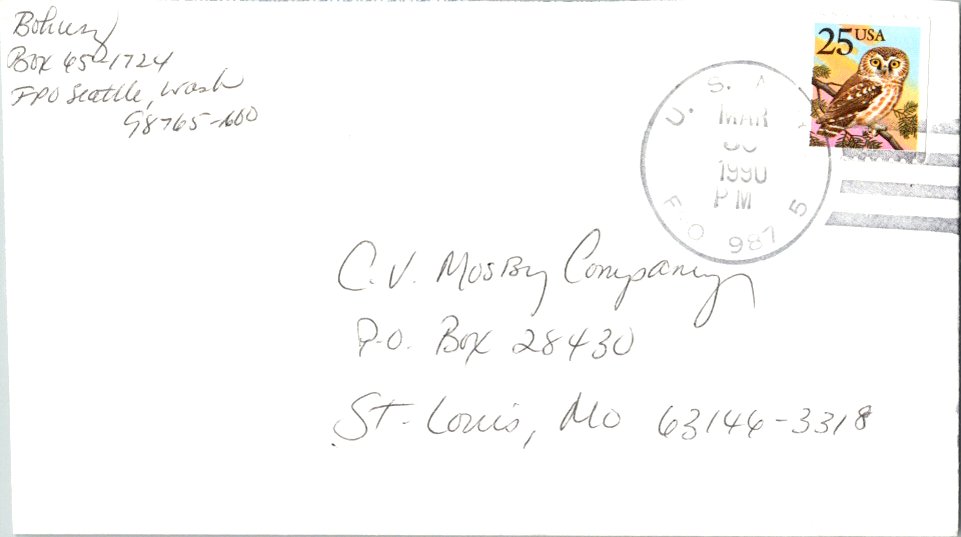 Box 65-1724
FPO Seattle, Wash
98765-
25 USA
U. S.
MAR
1990
PM
FPO 987 5
C.V. Mosby Company
P.O. Box 28430
St. Louis, Mo 63146-3318